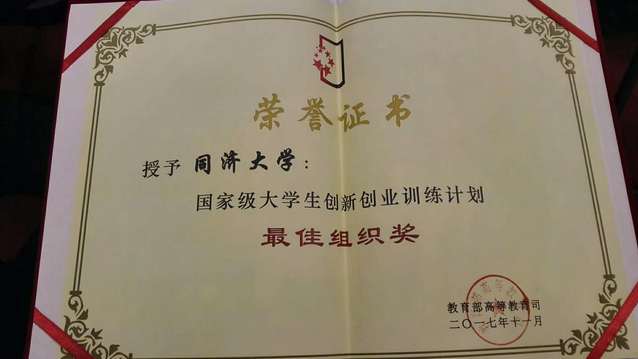 荣誉证书
授予 同济大学：
国家级大学生创新创业训练计划
最佳组织奖
教育部高等教育司
二〇一七年十一月